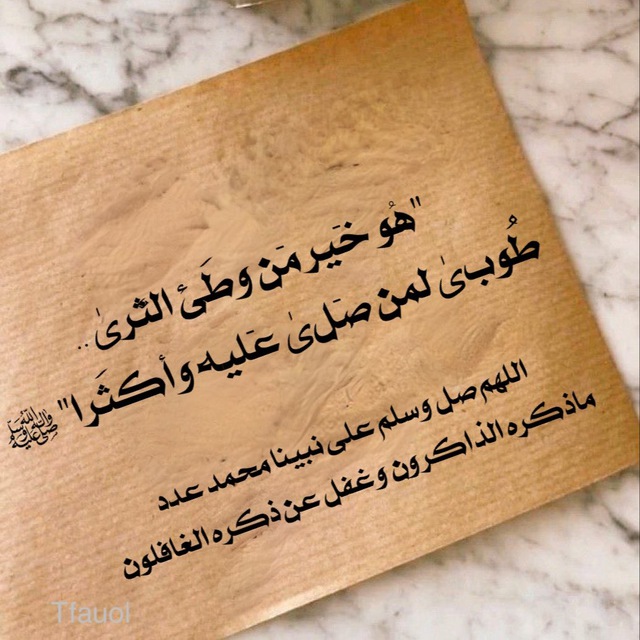 "هُو خَير مَن وطَئ الثرىٰ..
طُوبىٰ لمن صَلىٰ عَليه وأكثَرا" ﷺ
اللهم صل وسلم على نبينا محمد عدد
ماذكره الذاكرون وغفل عن ذكره الغافلون
Tfauol